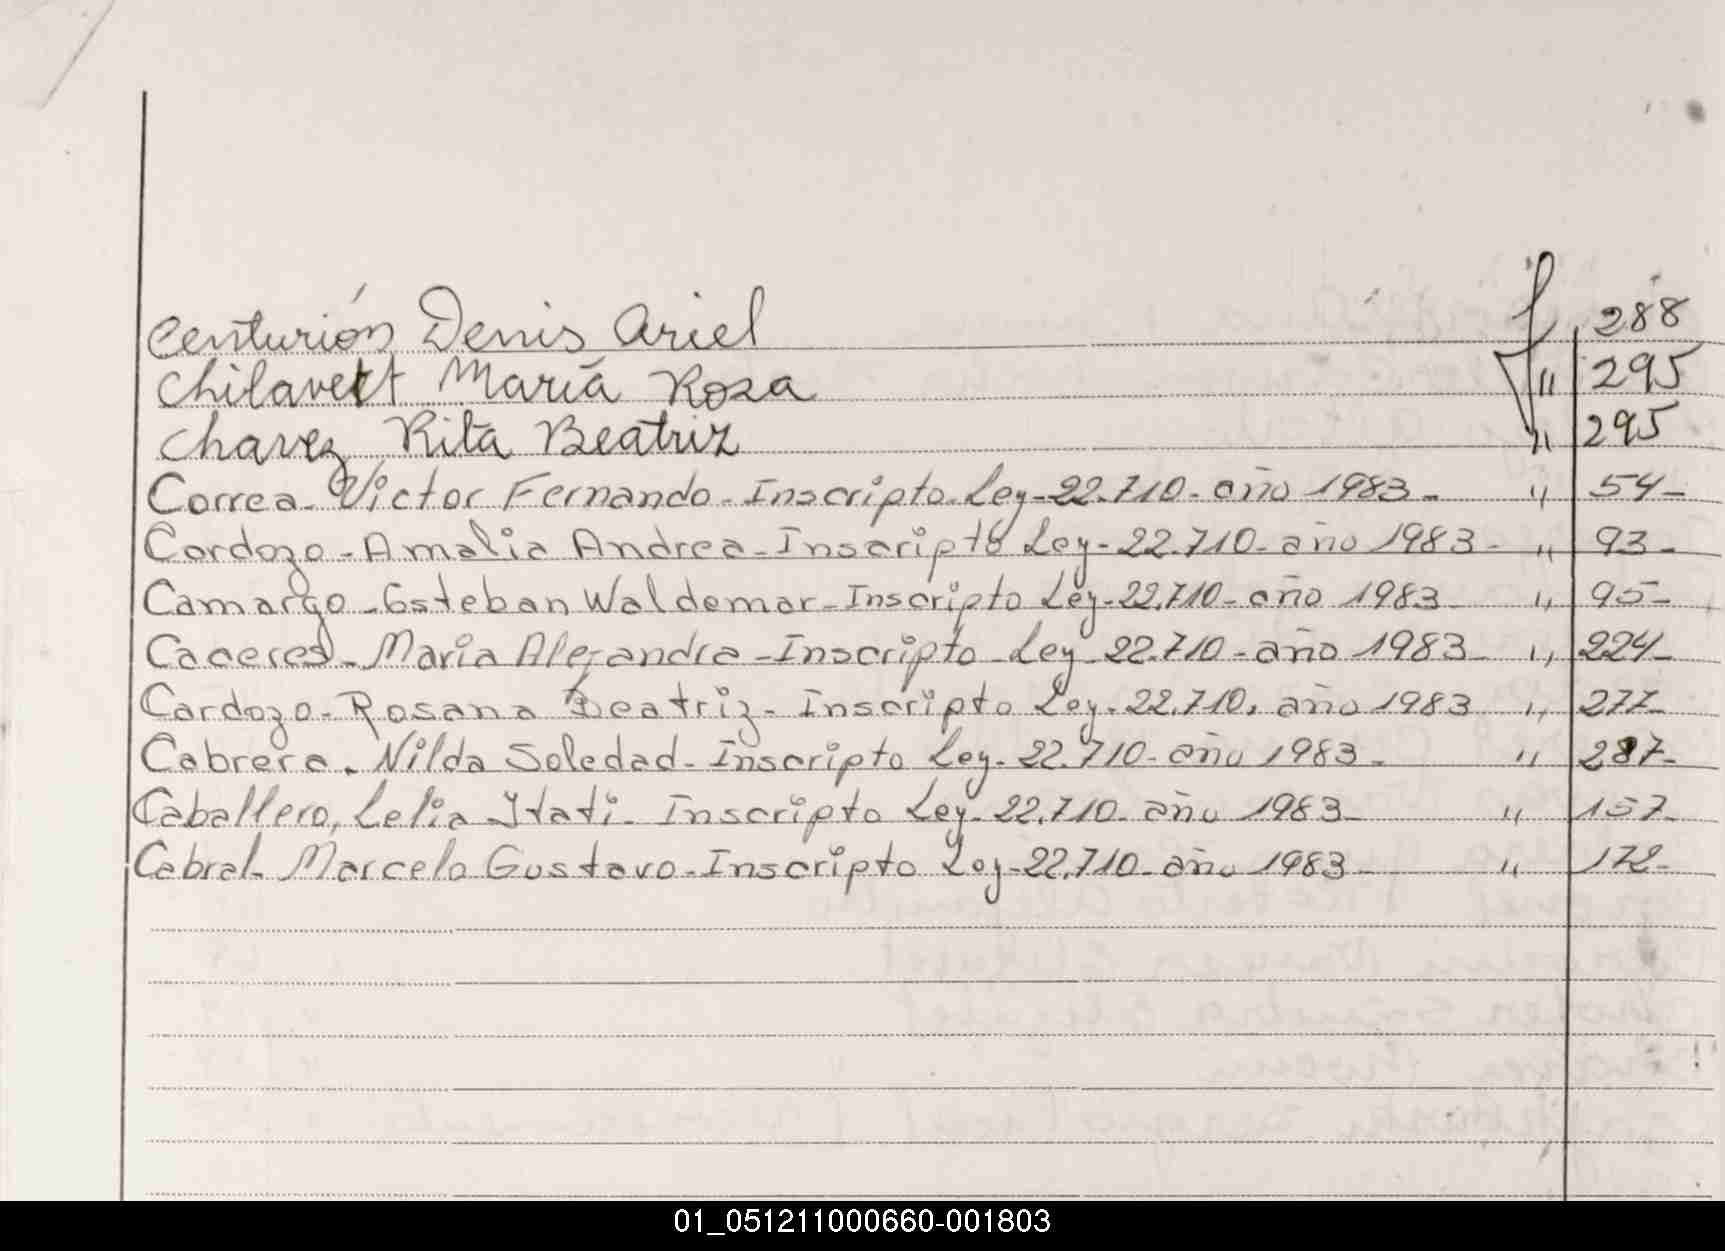 Centurión Denis Ariel f 288
Chilavert María Rosa " 295
Chavez Rita Beatriz " 295
Correa - Victor Fernando - Inscripto - Ley - 22.710 - año 1983 - " 54 -
Cardozo - Amalia Andrea - Inscripto Ley - 22.710 - año 1983 - " 93 -
Camargo - Esteban Waldemar - Inscripto Ley - 22.710 - año 1983 " 95 -
Caceres - Maria Alejandra - Inscripto - Ley - 22.710 - año 1983 " 224 -
Cardozo - Rosana Beatriz - Inscripto Ley - 22.710, año 1983 " 277 -
Cabrera - Nilda Soledad - Inscripto Ley - 22.710 - año 1983 - " 287 -
Caballero, Lelia Itati - Inscripto Ley - 22.710 - año 1983 - " 157 -
Cabral - Marcelo Gustavo - Inscripto Ley - 22.710 - año 1983 - " 172 -
01_051211000660-001803